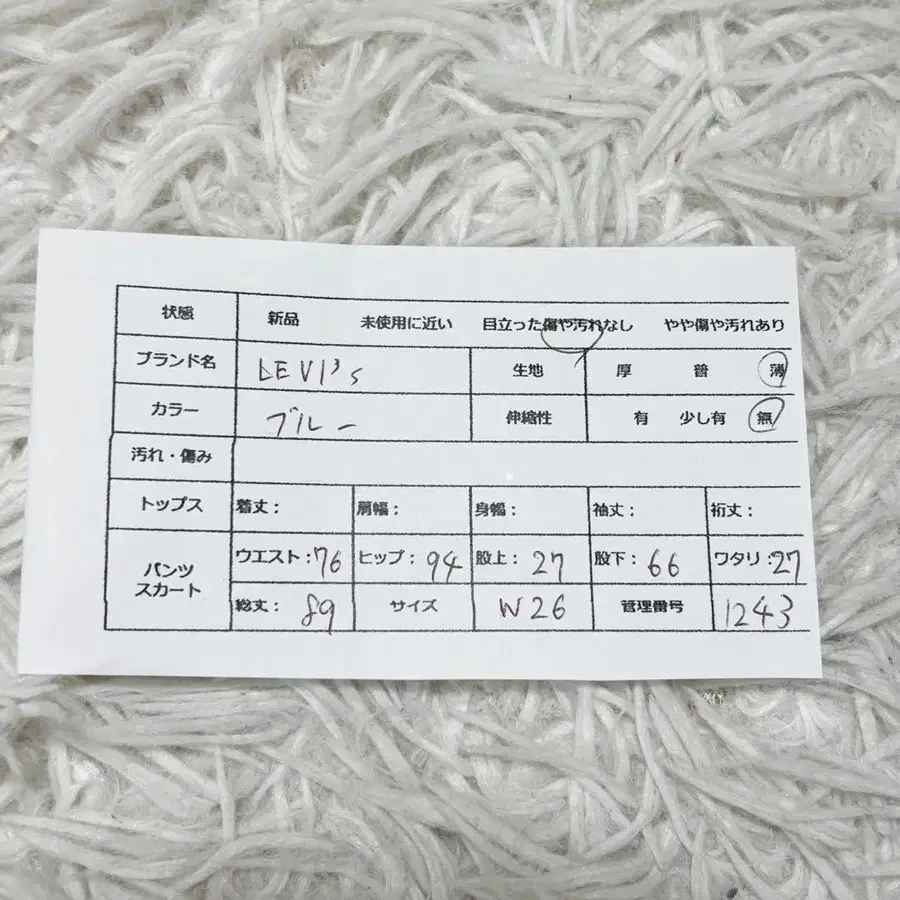 状態 新品 未使用に近い 目立った傷や汚れなし やや傷や汚れあり
ブランド名 LEVI's 生地 厚 普 薄
カラー ブルー 伸縮性 有 少し有 無
汚れ・傷み
トップス 着丈: 肩幅: 身幅: 袖丈: 裄丈:
パンツ スカート ウエスト:76 ヒップ:94 股上:27 股下:66 ワタリ:27
総丈:89 サイズ W26 管理番号 1243